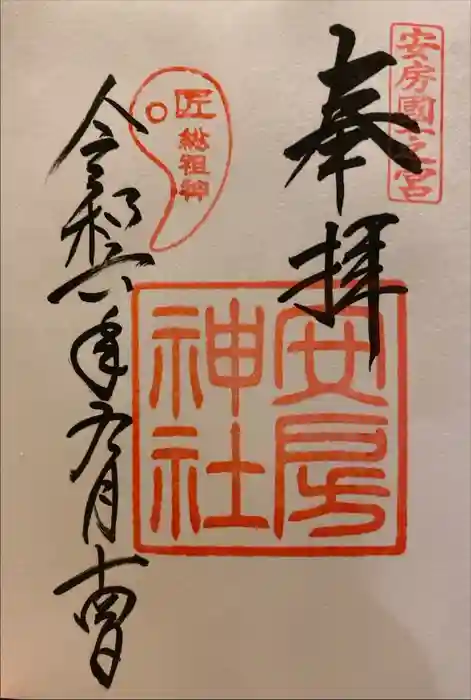 安房國一之宮
奉拝
安房
神社
匠
総祖神
令和六年九月十四日